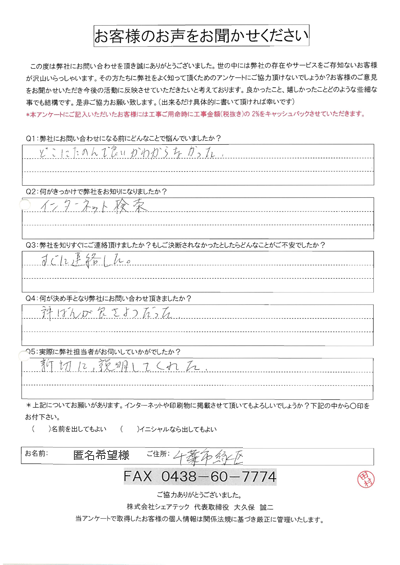 お客様のお声をお聞かせください
この度は弊社にお問い合わせを頂き誠にありがとうございました。世の中には弊社の存在やサービスをご存知ないお客様
が沢山いらっしゃいます。その方たちに弊社をよく知って頂くためのアンケートにご協力頂けないでしょうか?お客様のご意見
をお聞かせいただき今後の活動に反映させていただきたいと考えております。良かったこと、嬉しかったことどのような些細な
事でも結構です。是非ご協力お願い致します。(出来るだけ具体的に書いて頂ければ幸いです)
*本アンケートにご記入いただいたお客様には工事ご用命時に工事金額(税抜き)の2%をキャッシュバックさせていただきます。
Q1:弊社にお問い合わせになる前にどんなことで悩んでいましたか?
どこにたのんで良いかわからなかった.
Q2:何がきっかけで弊社をお知りになりましたか?
インターネット検索
Q3:弊社を知りすぐにご連絡頂けましたか?もしご決断されなかったとしたらどんなことがご不安でしたか?
すぐに連絡した。
Q4:何が決め手となり弊社にお問い合わせ頂きましたか?
評ばんが良さそうだった
Q5:実際に弊社担当者がお伺いしていかがでしたか?
新切に,説明してくれた.
*上記についてお願いがあります。インターネットや印刷物に掲載させて頂いてもよろしいでしょうか?下記の中から〇印を
お付下さい。
( )名前を出してもよい ( )イニシャルなら出してもよい
お名前: 匿名希望様 ご住所: 千葉市緑区
FAX 0438-60-7774
ご協力ありがとうございました。
株式会社シェアテック 代表取締役 大久保 誠二
当アンケートで取得したお客様の個人情報は関係法規に基づき厳正に管理いたします。